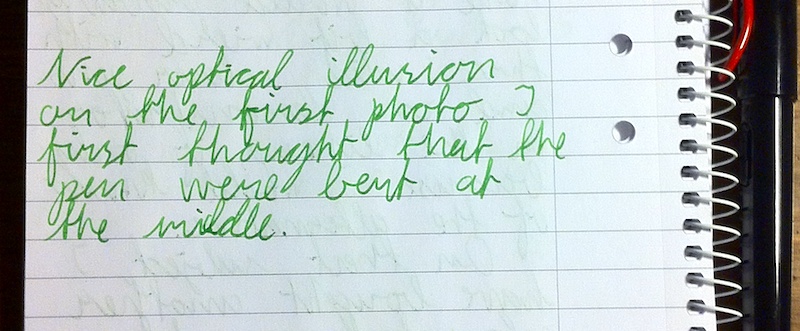 Nice optical illusion
on the first photo. I
first thought that the
pen were bent at
the middle.